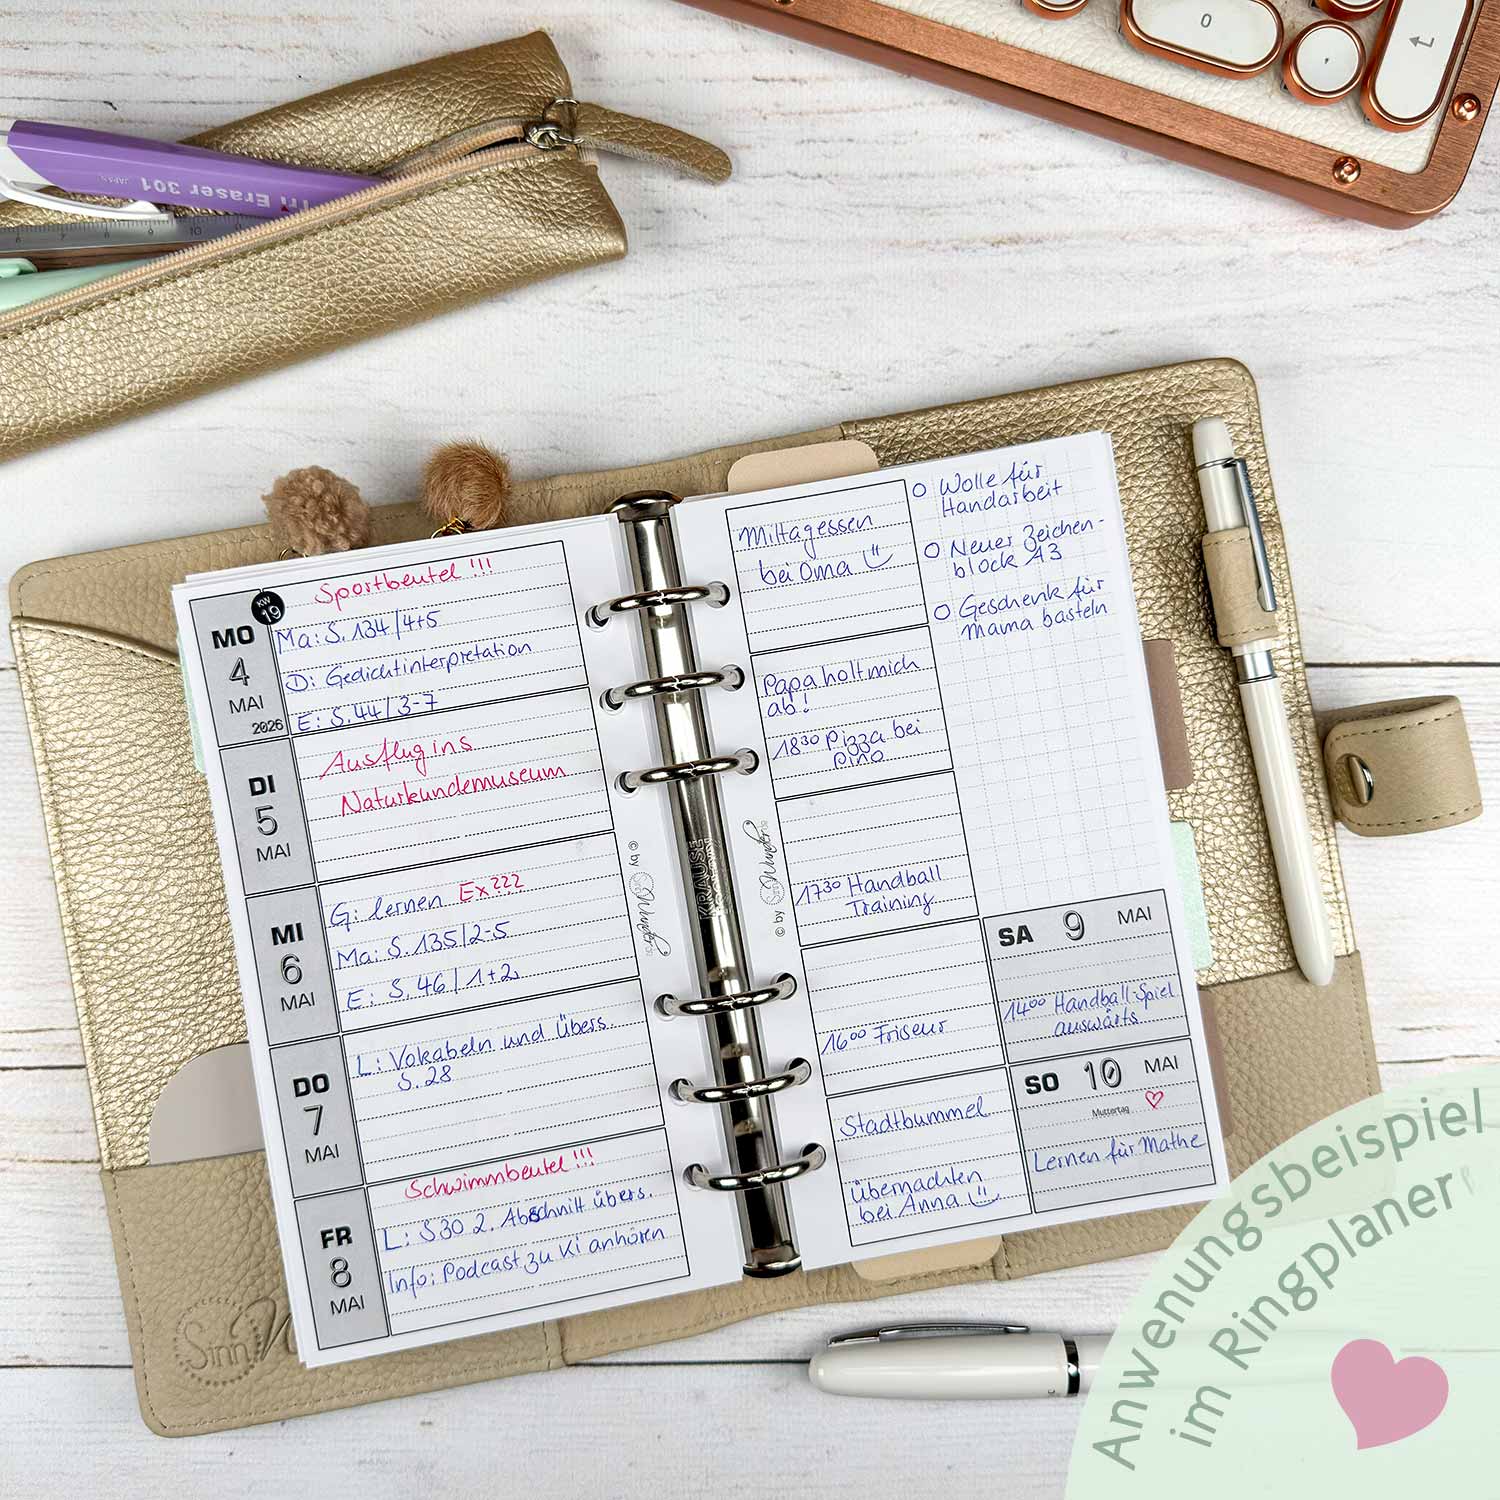 Tri Eraser 301
JAPAN
6 7 8 9 10
0
,
KW
19
MO
4
MAI
2026
Sportbeutel !!!
Ma: S. 134/4+5
D: Gedichtinterpretation
E: S. 44/3-7
DI
5
MAI
Ausflug ins
Naturkundemuseum
MI
6
MAI
G: lernen Ex???
Ma: S. 135/2-5
E: S. 46/1+2
DO
7
MAI
L: Vokabeln und Übers.
S. 28
FR
8
MAI
Schwimmbeutel !!!
L: S30 2. Abschnitt übers.
Info: Podcast zu Ki anhören
© by SinnWunder.de
KRAUSE
© by SinnWunder.de
Mittagessen
bei Oma
Papa holt mich
ab!
18³⁰ Pizza bei
Pino
17³⁰ Handball
Training
16⁰⁰ Friseur
Stadtbummel
übernachten
bei Anna
O Wolle für
Handarbeit
O Neuer Zeichen-
block A3
O Geschenk für
Mama basteln
SA 9 MAI
14⁰⁰ Handball-Spiel
auswärts
SO 10 MAI
Muttertag ♡
Lernen für Mathe
SinnW
Anwenungsbeispiel
im Ringplaner